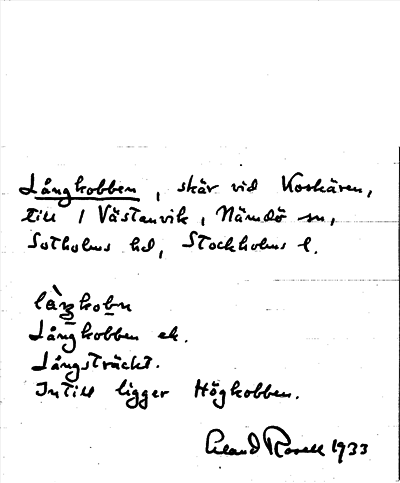 Långkobben, skär vid Korskären,
till 1 Västanvik, Nämdö sn,
Sotholms hd, Stockholms l.
làŋkobn
Långkobben ek.
Långsträckt.
Intill ligger Högkobben.
Erland Rosell 1933